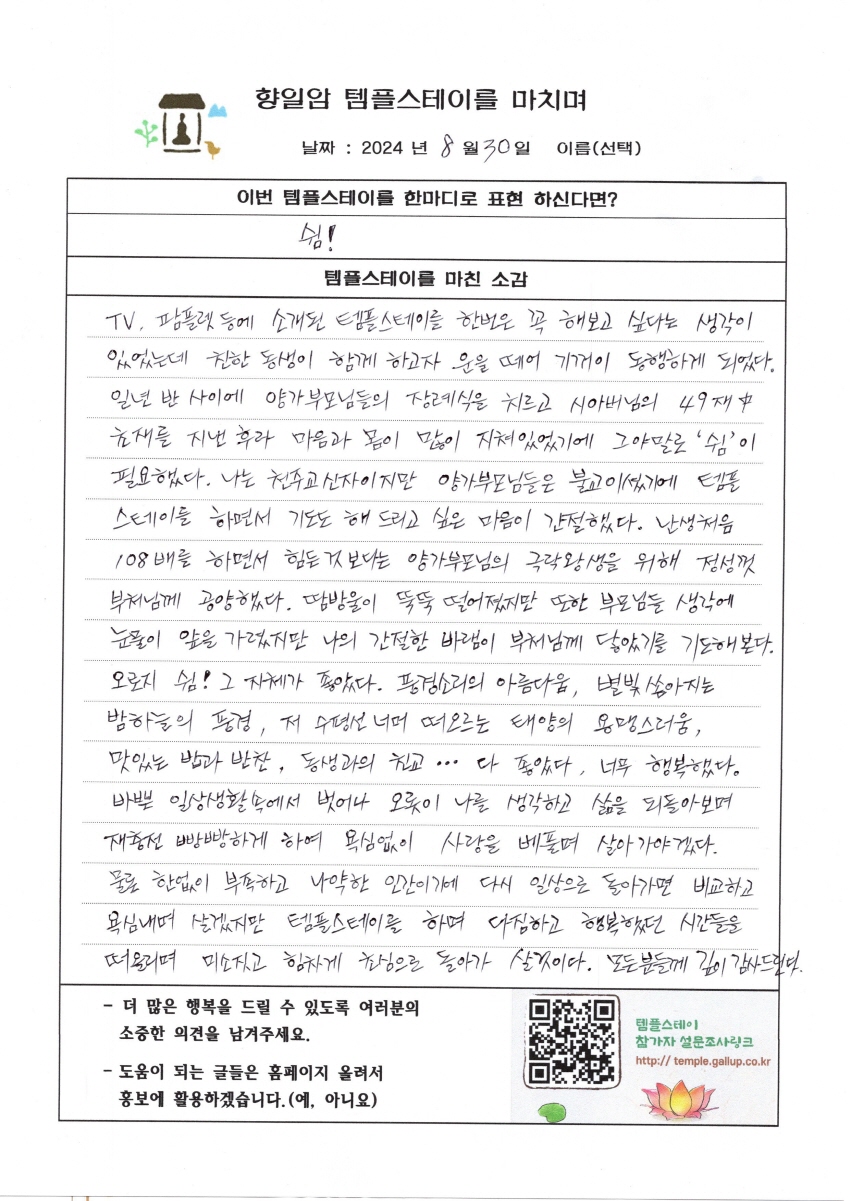 향일암 템플스테이를 마치며
날짜 : 2024 년 8 월 30 일 이름(선택)
이번 템플스테이를 한마디로 표현 하신다면?
쉼!
템플스테이를 마친 소감
TV, 팜플렛 등에 소개된 템플스테이를 한번은 꼭 해보고 싶다는 생각이
있었는데 친한 동생이 함께 하고자 운을 떼어 기꺼이 동행하게 되었다.
일년 반 사이에 양가부모님들의 장례식을 치르고 시아버님의 49재中
초재를 지낸 후라 마음과 몸이 많이 지쳐있었기에 그야말로 '쉼'이
필요했다. 나는 천주교신자이지만 양가부모님들은 불교이셨기에 템플
스테이를 하면서 기도도 해 드리고 싶은 마음이 간절했다. 난생처음
108배를 하면서 힘든것 보다는 양가부모님의 극락왕생을 위해 정성껏
부처님께 공양했다. 땀방울이 뚝뚝 떨어졌지만 또한 부모님들 생각에
눈물이 앞을 가렸지만 나의 간절한 바램이 부처님께 닿았기를 기도해본다.
오로지 쉼! 그 자체가 좋았다. 풍경소리의 아름다움, 별빛 쏟아지는
밤하늘의 풍경, 저 수평선 너머 떠오르는 태양의 용맹스러움,
맛있는 밥과 반찬, 동생과의 친교 ··· 다 좋았다, 너무 행복했다.
바쁜 일상생활속에서 벗어나 오롯이 나를 생각하고 삶을 되돌아보며
재충전 빵빵하게 하여 욕심없이 사랑을 베풀며 살아가야겠다.
물론 한없이 부족하고 나약한 인간이기에 다시 일상으로 돌아가면 비교하고
욕심내며 살겠지만 템플스테이를 하며 다짐하고 행복했던 시간들을
떠올리며 미소짓고 힘차게 초심으로 돌아가 살것이다. 모든분들께 깊이 감사드린다.
- 더 많은 행복을 드릴 수 있도록 여러분의
소중한 의견을 남겨주세요.
- 도움이 되는 글들은 홈페이지 올려서
홍보에 활용하겠습니다.(예, 아니요)
템플스테이
참가자 설문조사링크
http:// temple.gallup.co.kr